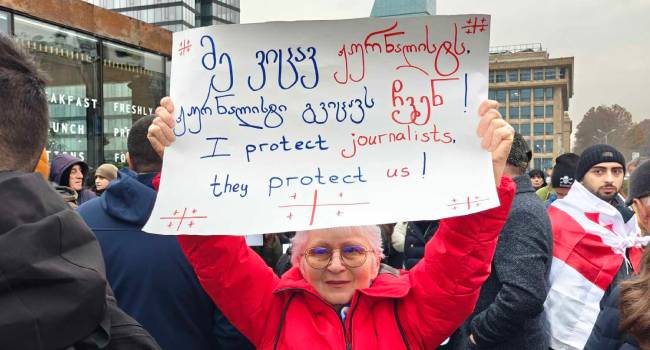 მე ვიცავ ჟურნალისტს.
ჟურნალისტი გვიცავს ჩვენ!
I protect journalists.
they protect us!
FRESHLY
LUNCH